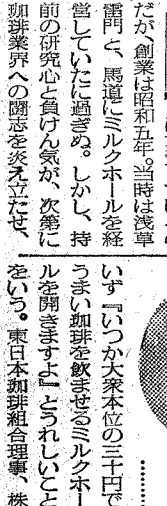 だが、創業は昭和五年。当時は浅草
雷門と、馬道にミルクホールを経
営していたに過ぎぬ。しかし、持
前の研究心と負けん気が、次第に
珈琲業界への闘志を炎え立たせ、
いず『いつか大衆本位の三十円で
うまい珈琲を飲ませるミルクホー
ルを開きますよ』とうれしいこと
をいう。東日本珈琲組合理事、株